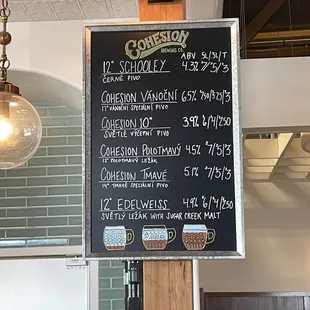 COHESION
COHESION
BREWING CO.
ABV 5L/3L/T
12° SCHOOLEY 4.3% 7/5/3
ČERNÉ PIVO
COHESION VÁNOČNÍ 6.5% 7.50/5.25/3
17° VÁNOČNÍ SPECIÁLNÍ PIVO
COHESION 10° 3.9% 6/4/2.50
SVĚTLÉ VÝČEPNÍ PIVO
COHESION POLOTMAVÝ 4.5% 7/5/3
12° POLOTMAVÝ LEŽÁK
COHESION TMAVÉ 5.1% 7/5/3
14° TMAVÉ SPECIÁLNÍ PIVO
12° EDELWEISS 4.9% 6/4/2.50
SVĚTLÝ LEŽÁK WITH SUGAR CREEK MALT